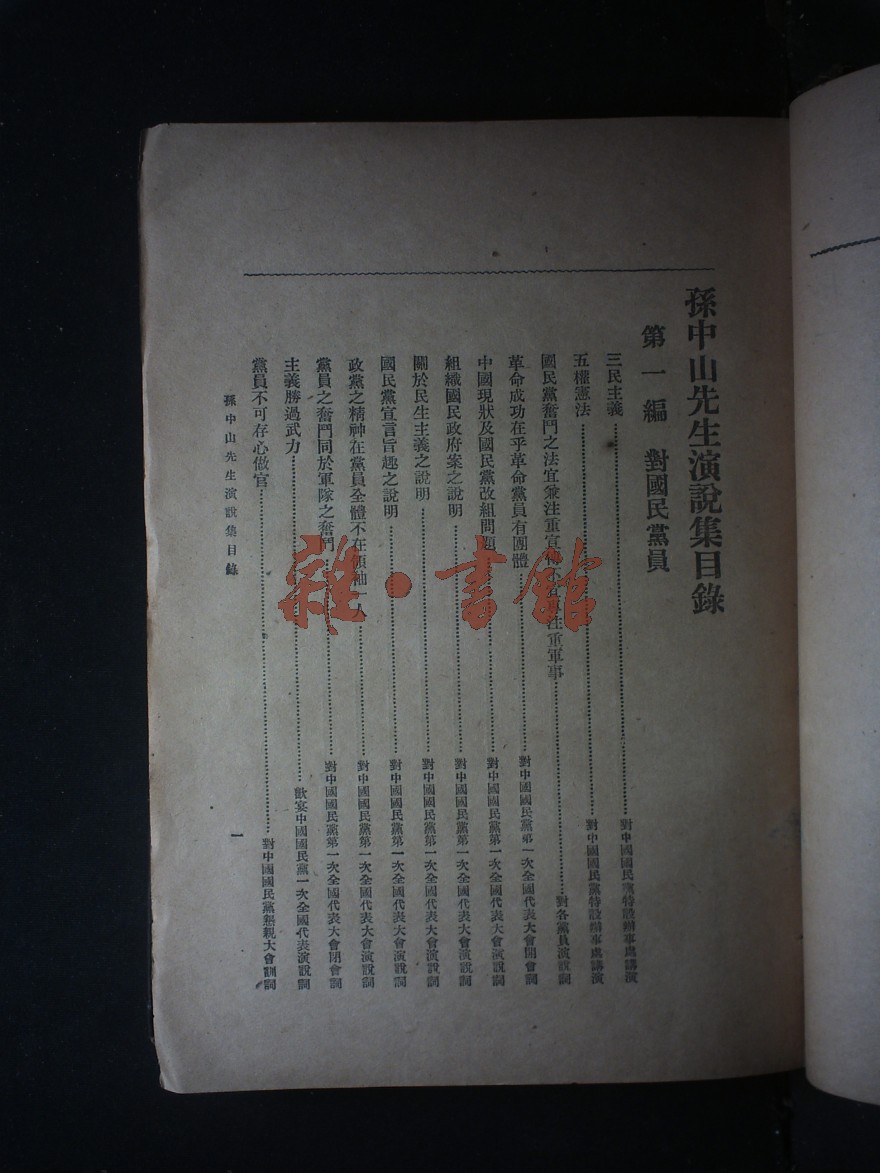 孫中山先生演說集目錄
第一編 對國民黨員
三民主義……對中國國民黨特設辦事處講演
五權憲法……對中國國民黨特設辦事處講演
國民黨奮鬥之法宜兼注重宣傳不宜專注重軍事……對各黨員演說詞
革命成功在乎革命黨員有團體……對中國國民黨第一次全國代表大會開會詞
中國現狀及國民黨改組問題……對中國國民黨第一次全國代表大會演說詞
組織國民政府案之說明……對中國國民黨第一次全國代表大會演說詞
關於民生主義之說明……對中國國民黨第一次全國代表大會演說詞
國民黨宣言旨趣之說明……對中國國民黨第一次全國代表大會演說詞
政黨之精神在黨員全體不在領袖一人……對中國國民黨第一次全國代表大會演說詞
黨員之奮鬥同於軍隊之奮鬥……對中國國民黨第一次全國代表大會閉會詞
主義勝過武力……歡宴中國國民黨一次全國代表演說詞
黨員不可存心做官……對中國國民黨懇親大會訓詞
孫中山先生演說集目錄
一
雜·書館